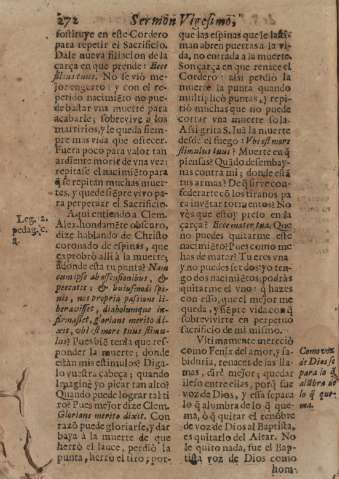 272 Sermon Vigesimo,
fostituye en este Cordero
para repetir el Sacrificio.
Dale nueva filiacion de la
çarça en que prende: Ecce
filius tuus. No se viò me-
jor engerto: y con el re-
petido nacimiẽto no pue-
de bastar vna muerte para
acabarle; sobrevive a los
martirios, y le queda siem-
pre mas vida que ofrecer.
Fuera poco para valor tan
ardiente morir de vna vez:
repitase el nacimiẽto para
q̃ se repitan muchas muer-
tes, y quede siẽpre vivo pa-
ra perpetuar el Sacrificio.
Aqui entiendo a Clem.
Alex. hondamẽte obscuro,
dize hablando de Christo
coronado de espinas, que
exprobrò alli à la muerte,
adonde esta tu punta? Nam
cum ipse ab offensionibus, &
peccatis; & huiusmodi spi-
nis, nos propria passione libe-
raviisset, diabolumque in-
firmasset, glorians merito di-
xit, vbi est mors tuus stimu-
lus? Pues biẽ tenia que res-
ponder la muerte; donde
estàn mis estimulos? Diga-
lo vuestra cabeça; quando
imaginè yo picar tan alto?
Quando puede lograr tal ti
ro? Pues mejor dize Clem.
Glorians merito dixit. Con
razõ puede gloriarse, y dar
baya à la muerte de que
herrò el lance, perdiò la
punta, herrò el tiro; por-
Leg. 2.
pedag. c.
8.
que las espinas que le lasti-
man abren puertas a la vi-
da, no entrada a la muerte.
Son çarça en que renace el
Cordero: assi perdiò la
muerte la punta quando
multiplicò puntas, y repi-
tiò muchas que no puede
cortar vna muerte sola.
Assi grita S. Iuã la muerte
desde el fuego: Vbi est mors
stimulus tuus? Muerte en q̃
piensas? Quãdo desembay-
nas contra mi; donde estã
tus armas? De q̃ sirve con-
federarte cõ los tiranos pa
ra invẽtar tormentos? No
vès que estoy preso en la
çarça? Ecce mater tua. Que
no puedes quitarme este
nacimiẽto? Pues como me
has de matar? Tu eres vna
y no puedes ser dos: yo ten-
go dos nacimiẽtos; podràs
quitarme el vno: q̃ hazes
con esso, que el mejor me
queda, y siẽpre vida con
sobrevivirte en perpetuo
sacrificio de mi mismo.
Vltimamente mereciò
como Fenix del amor, y sa-
biduria, renacer de las lla-
mas, darè mejor; quedar
ileso entre ellas, porq̃ fue
voz de Dios, y essa sepa-
lo q̃ alumbra de lo q̃ que-
ma, ò q̃ quitar el renõbre
de voz de Dios al Baptista,
es quitarlo del Altar. No
le quito nada, fue el Bap-
tista voz de Dios como
Como voz
de Dios se
para lo q̃
alũbra de
lo q̃ que-
ma.
hom-